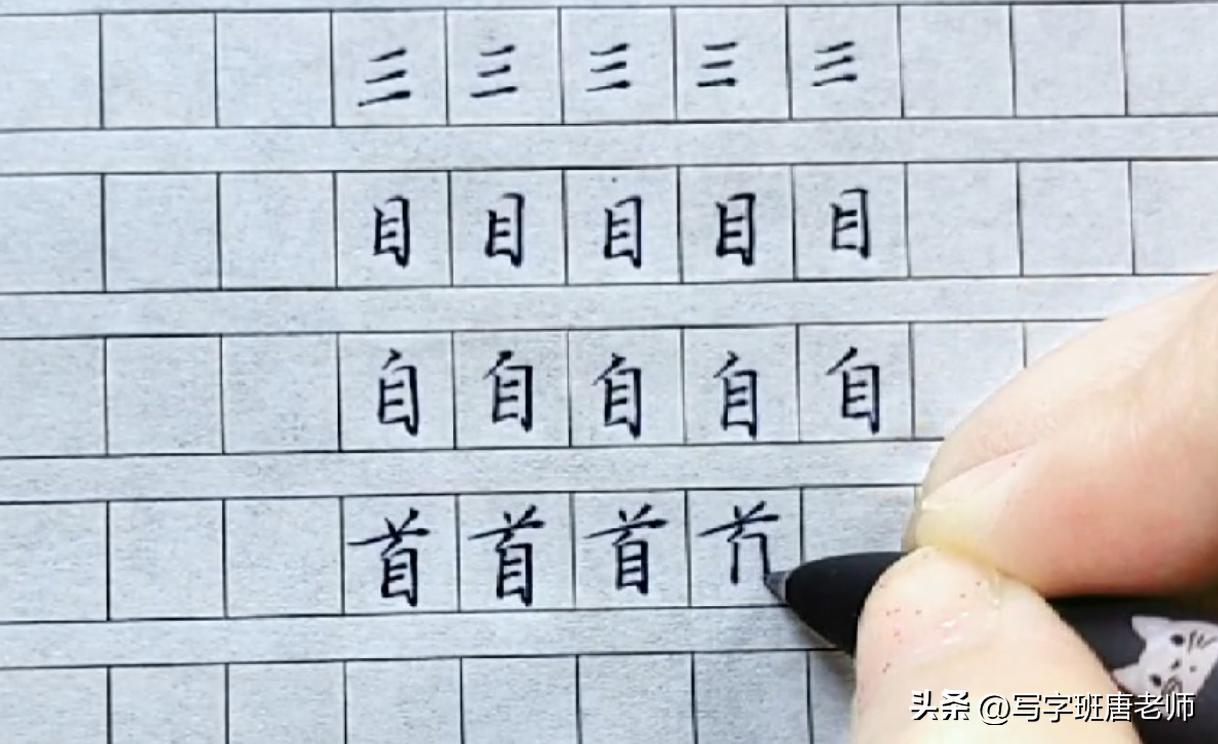 三 三 三 三 三
目 目 目 目 目
自 自 自 自 自
首 首 首
头条 @写字班唐老师